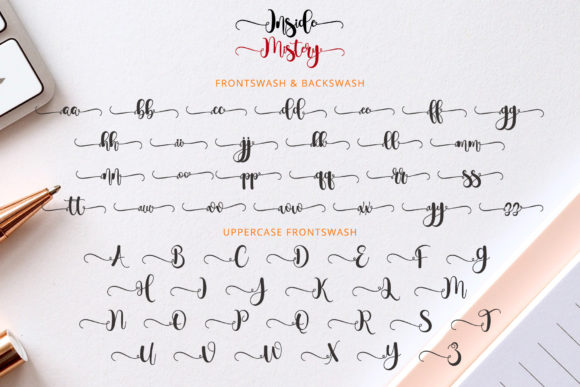 Inside
Mistery
FRONTSWASH & BACKSWASH
aa bb cc dd ee ff gg
hh ii jj kk ll mm
nn oo pp qq rr ss
tt uu vv ww xx yy zz
UPPERCASE FRONTSWASH
A B C D E F G
H I J K L M
N O P Q R S T
U V W X Y Z